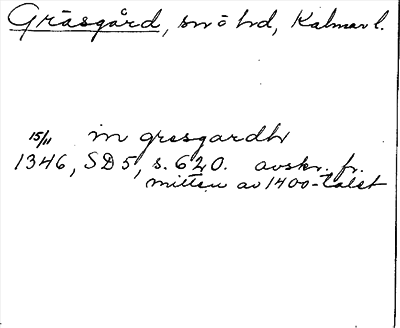 Gräsgård, sn ö hd, Kalmar l.
15/11 in gresgardh
1346, SD 5, s. 620. avskr. fr.
mitten av 1400-talet